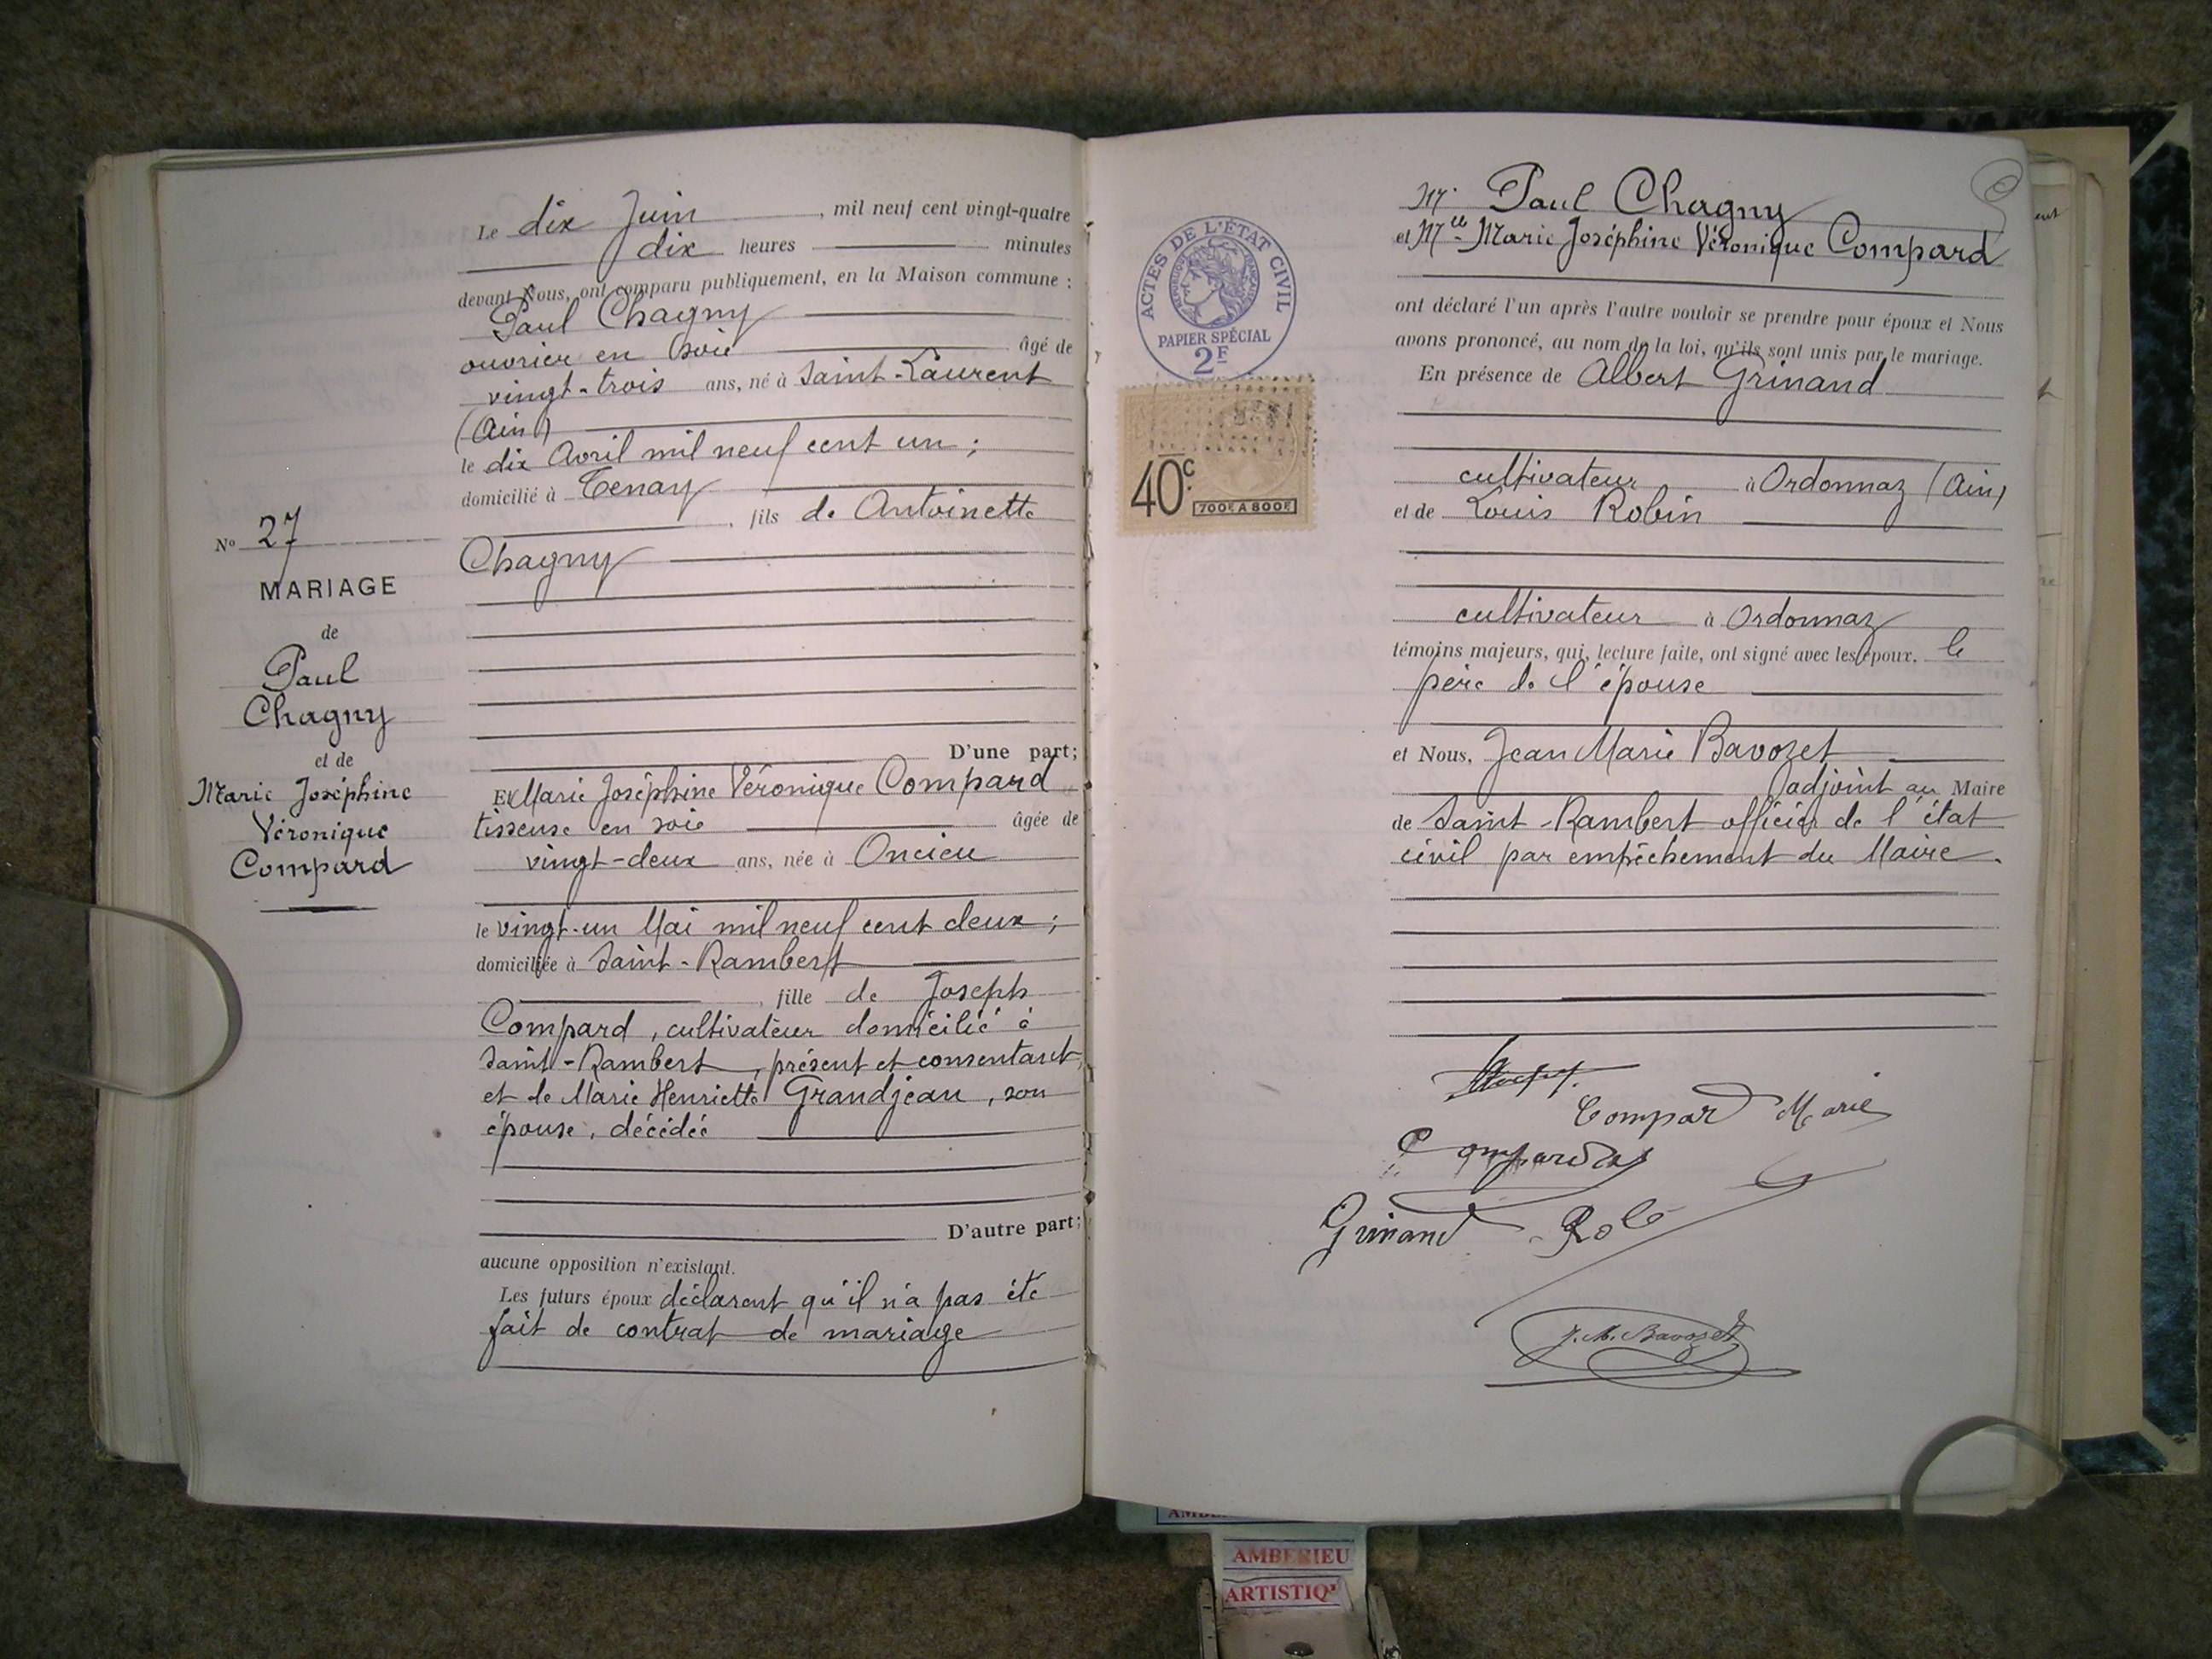 N° 27
MARIAGE
de
Paul
Chagny
et de
Marie Joséphine
Véronique
Compard
Le dix Juin, mil neuf cent vingt-quatre
dix heures minutes
devant Nous, ont comparu publiquement, en la Maison commune :
Paul Chagny
ouvrier en soie âgé de
vingt-trois ans, né à Saint-Laurent
(Ain)
le dix Avril mil neuf cent un ;
domicilié à Tenay
, fils de Antoinette
Chagny
D'une part;
Et Marie Joséphine Véronique Compard
tisseuse en soie âgée de
vingt-deux ans, née à Oncieu
le vingt-un Mai mil neuf cent deux ;
domiciliée à Saint-Rambert
, fille de Joseph
Compard, cultivateur domicilié à
Saint-Rambert, présent et consentant,
et de Marie Henriette Grandjean, son
épouse, décédée
D'autre part;
aucune opposition n'existant.
Les futurs époux déclarent qu'il n'a pas été
fait de contrat de mariage
ACTES DE L'ÉTAT CIVIL
RÉPUBLIQUE FRANÇAISE
PAPIER SPÉCIAL
2F
40c.
700F A 800F
Mr Paul Chagny
et Mlle Marie Joséphine Véronique Compard
ont déclaré l'un après l'autre vouloir se prendre pour époux et Nous
avons prononcé, au nom de la loi, qu'ils sont unis par le mariage.
En présence de Albert Grinand
cultivateur à Ordonnaz (Ain)
et de Louis Robin
cultivateur à Ordonnaz
témoins majeurs, qui, lecture faite, ont signé avec les époux, le
père de l'épouse
et Nous, Jean Marie Bavozet
adjoint au Maire
de Saint-Rambert officier de l'état
civil par empêchement du Maire.
Compard Marie
Compard
Grinand
J. M. Bavozet
AMBERIEU
ARTISTIQ